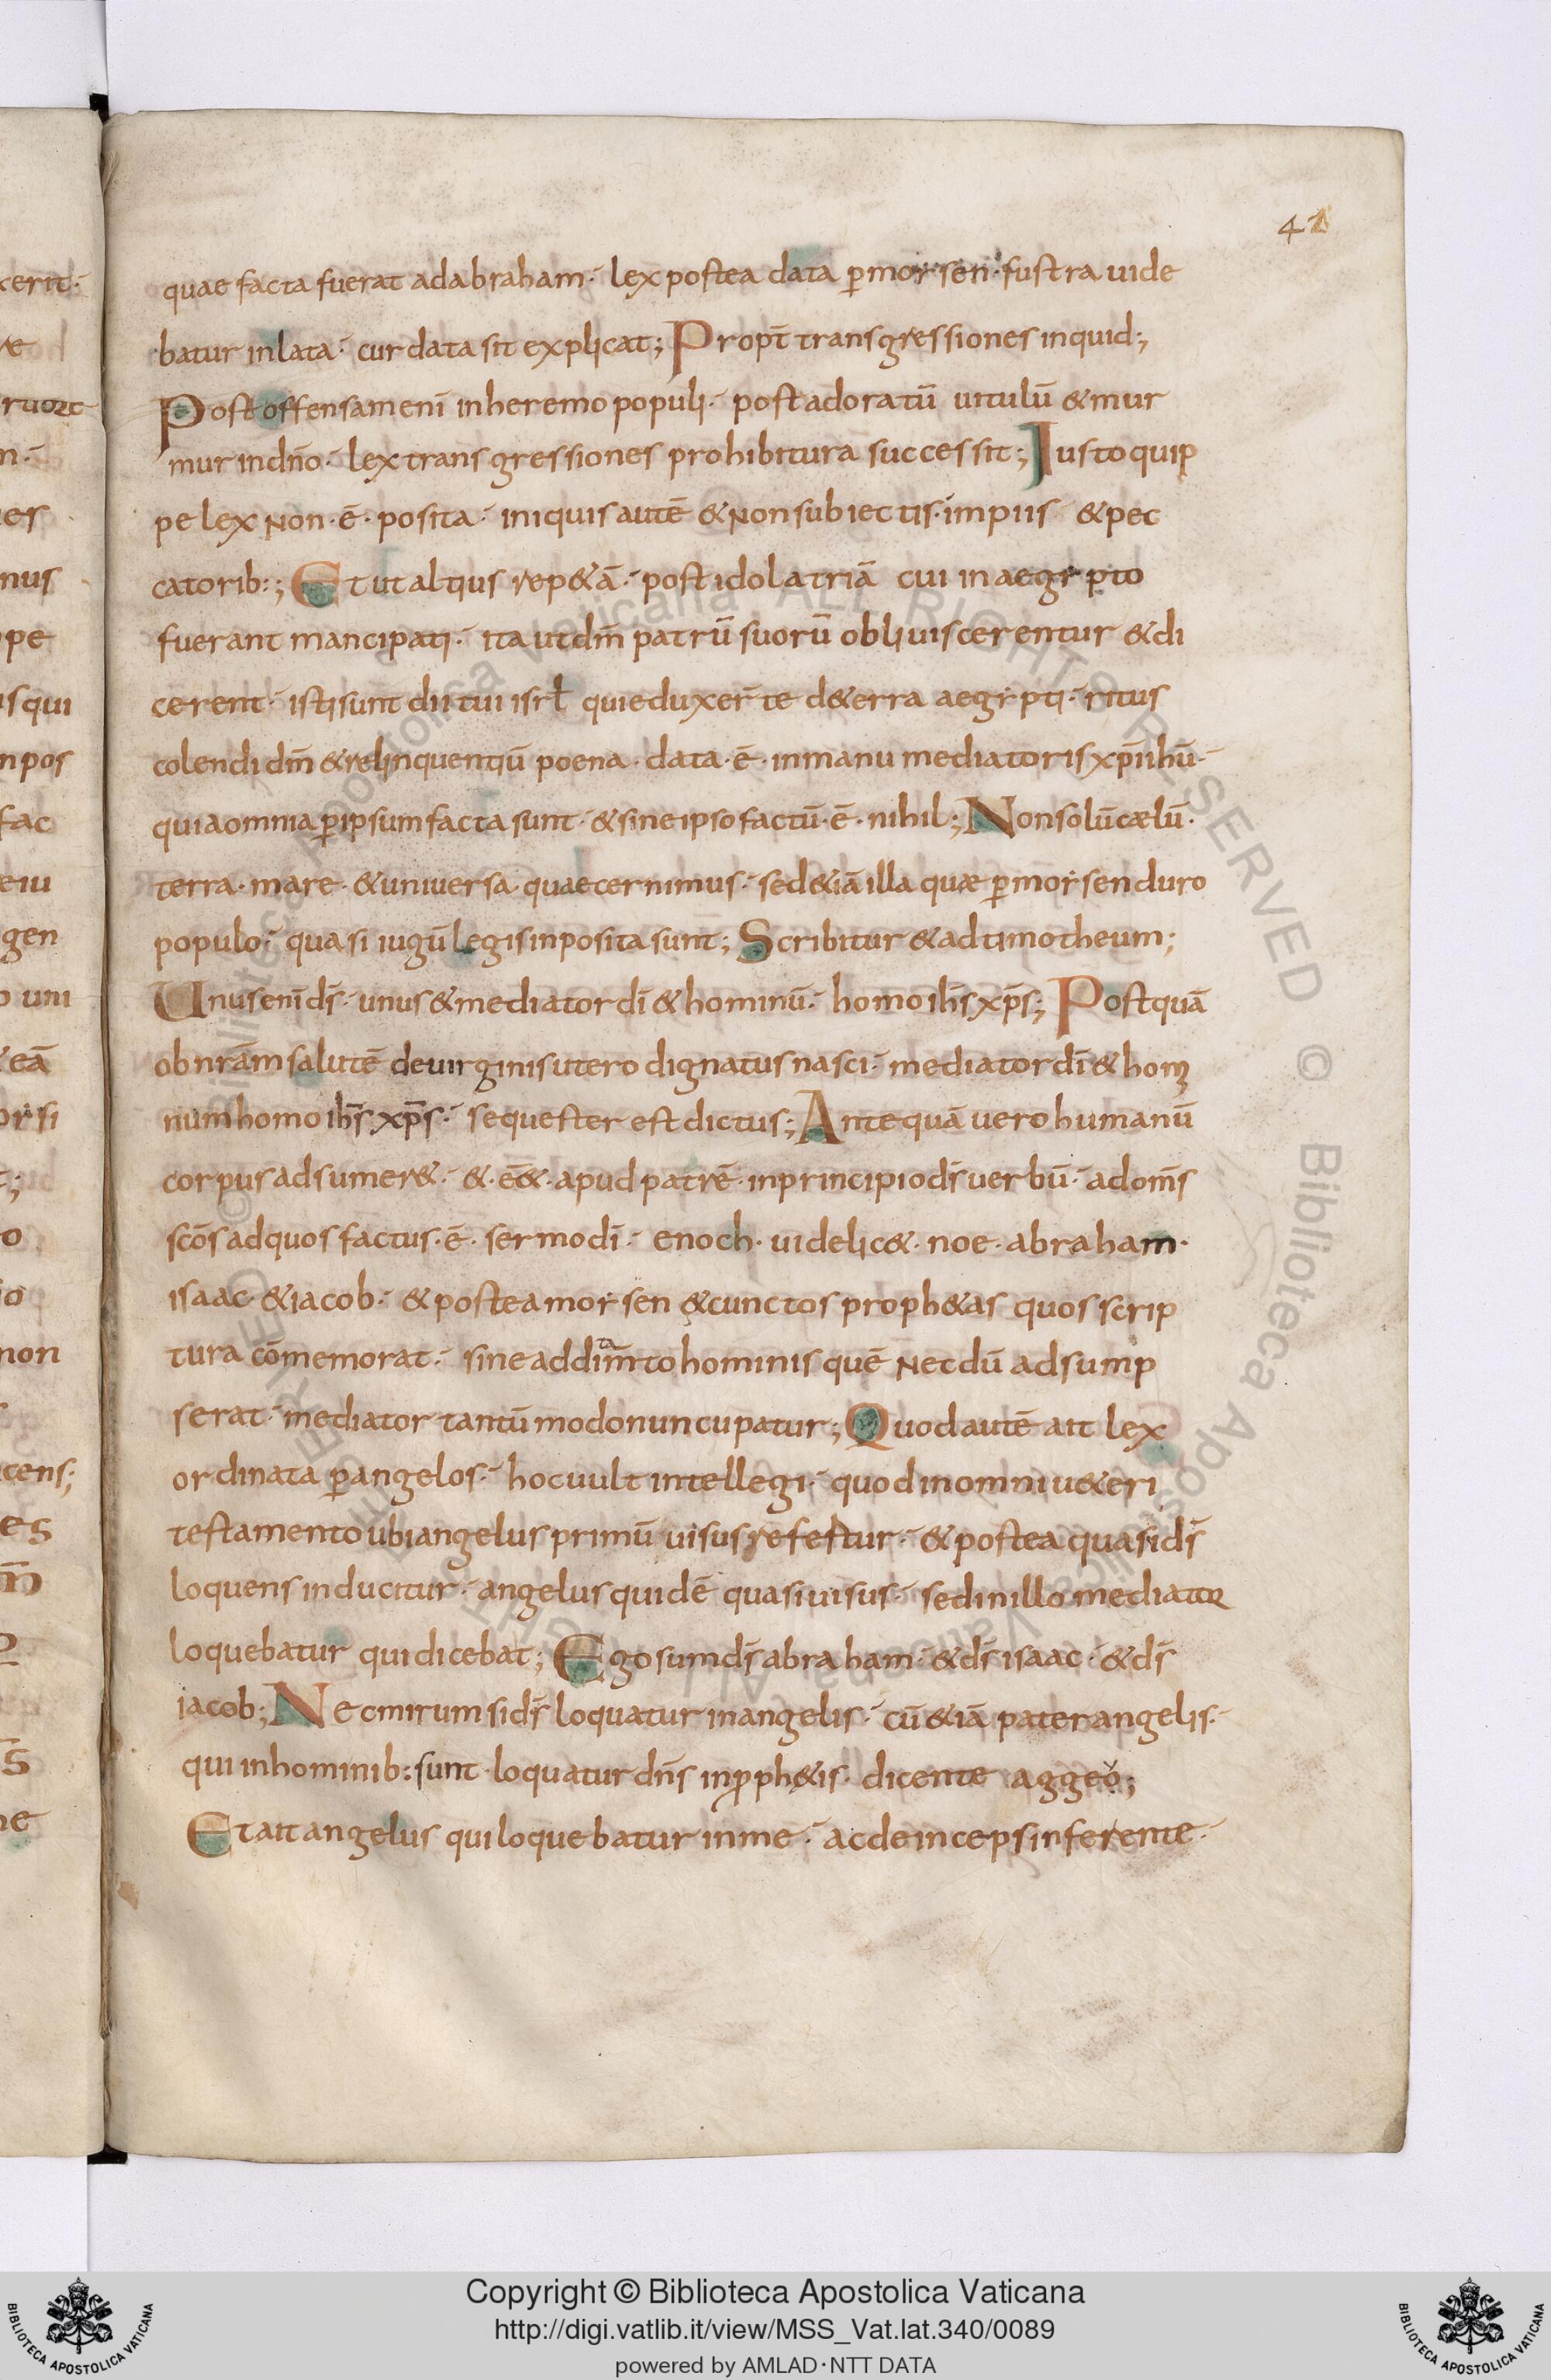 42
quae facta fuerat adabraham· lex postea data ꝑ moẏsen· fustra uide
batur inlata· cur data sit explicat; Propt̄ transgressiones inquid;
Post offensam eni᷇ inheremo populi· post adoratū uitulū & mur
mur indn̄o· lex transgressiones prohibitura successit; Justo quip
pe lex non·ē·posita· iniquis autē & non subiectis· impiis & pec
catorib:; Et ut altius rep&ā· post idolatriā cui in aegẏpto
fuerant mancipati· ita ut dm̄ patrū suorū obliuiscerentur & di
cerent· isti sunt dii tui isrł qui eduxer̄ te d&erra aegẏpti· ritus
colendi dm̄ & relinquentiū poena·data·ē·inmanu mediatoris xp̄i ihū·
quia omnia ꝑ ipsum facta sunt· & sine ipso factū·ē·nihil; Non solū cælū·
terra·mare·& uniuersa quae cernimus· sed &iā illa quæ ꝑ moẏsen duro
populo· quasi iugū legis inposita sunt; Scribitur & ad timotheum;
Unus enī ds̄· unus & mediator dī & hominū· homo ihs̄ xp̄s; Postquā
ob nrām salutē de uirginis utero dignatus nasci· mediator dī & homi
num homo ihs̄ xp̄s· sequester est dictus; Antequā uero humanū
corpus adsumer&· &·ē&·apud patrē·inprincipio ds̄ uerbū· ad om̄s
scōs ad quos factus·ē·sermo dī· enoch·uidelic&·noe·abraham·
isaac·& iacob· & postea moẏsen & cunctos proph&as quos scrip
tura cōmemorat· sine addim̄to hominis quē necdū adsump
serat· mediator tantū modo nuncupatur; Quod autē ait lex
ordinata ꝑ angelos· hoc uult intellegi· quod in omni u&eri
testamento ubi angelus primū uisus refertur· & postea quasi ds̄
loquens inducitur· angelus quidē quasi uisus· sed in illo mediator
loquebatur qui dicebat; Ego sum ds̄ abraham· & ds̄ isaac· & ds̄
iacob; Nec mirum si ds̄ loquatur in angelis· cū &iā pater angelis·
qui in hominib: sunt loquatur dn̄s in ꝓph&is· dicente aggeo;
Et ait angelus qui loquebatur in me· ac deinceps inferente·
Copyright © Biblioteca Apostolica Vaticana
http://digi.vatlib.it/view/MSS_Vat.lat.340/0089
powered by AMLAD·NTT DATA
BIBLIOTECA APOSTOLICA VATICANA
BIBLIOTECA APOSTOLICA VATICANA